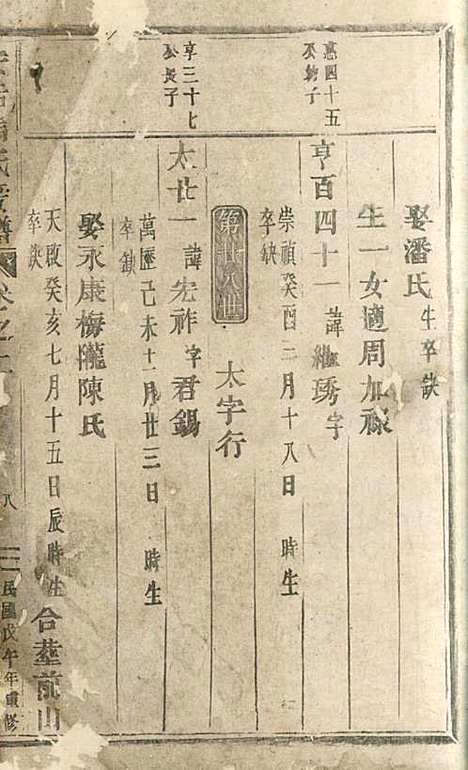 娶潘氏 生卒缺
生一女適周加祿
惠四十五
公的子
亨百四十一 諱繼琇 字
崇禎癸酉二月十八日 時生
卒缺
第廿八世 太字行
亨三十七
公長子
太廿一 諱宏祚 字君錫
萬歷己未十二月廿三日 時生
卒缺
娶永康梅隴陳氏
天啟癸亥七月十五日辰時生 合塟前山
卒缺
卷之十二 八 民國戊午年重修